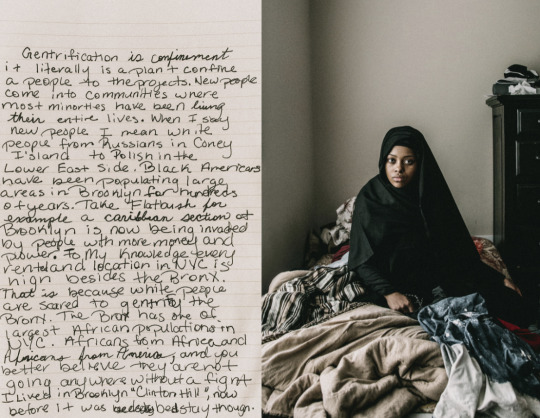 Gentrification is confinement
it literally is a plan + confine
a people to the projects. New people
come into communities where
most minorities have been living
their entire lives. When I say
new people I mean white
people from Russians in Coney
Island to Polish in the
Lower East Side. Black Americans
have been populating large
areas in Brooklyn for hundreds
of years. Take Flatbush for
example a caribbian section of
Brooklyn is now being invaded
by people with more money and
power. To My Knowledge every
rent and location in NYC is
high besides the Bronx.
That is because white people
are scared to gentrify the
Bronx. The Bronx has one of
largest African populations in
NYC. Africans from Africa and
Africans from America, and you
better believe they are not
going anywhere without a fight
I Lived in Brooklyn "Clinton Hill" now
before it was bedstuy though.